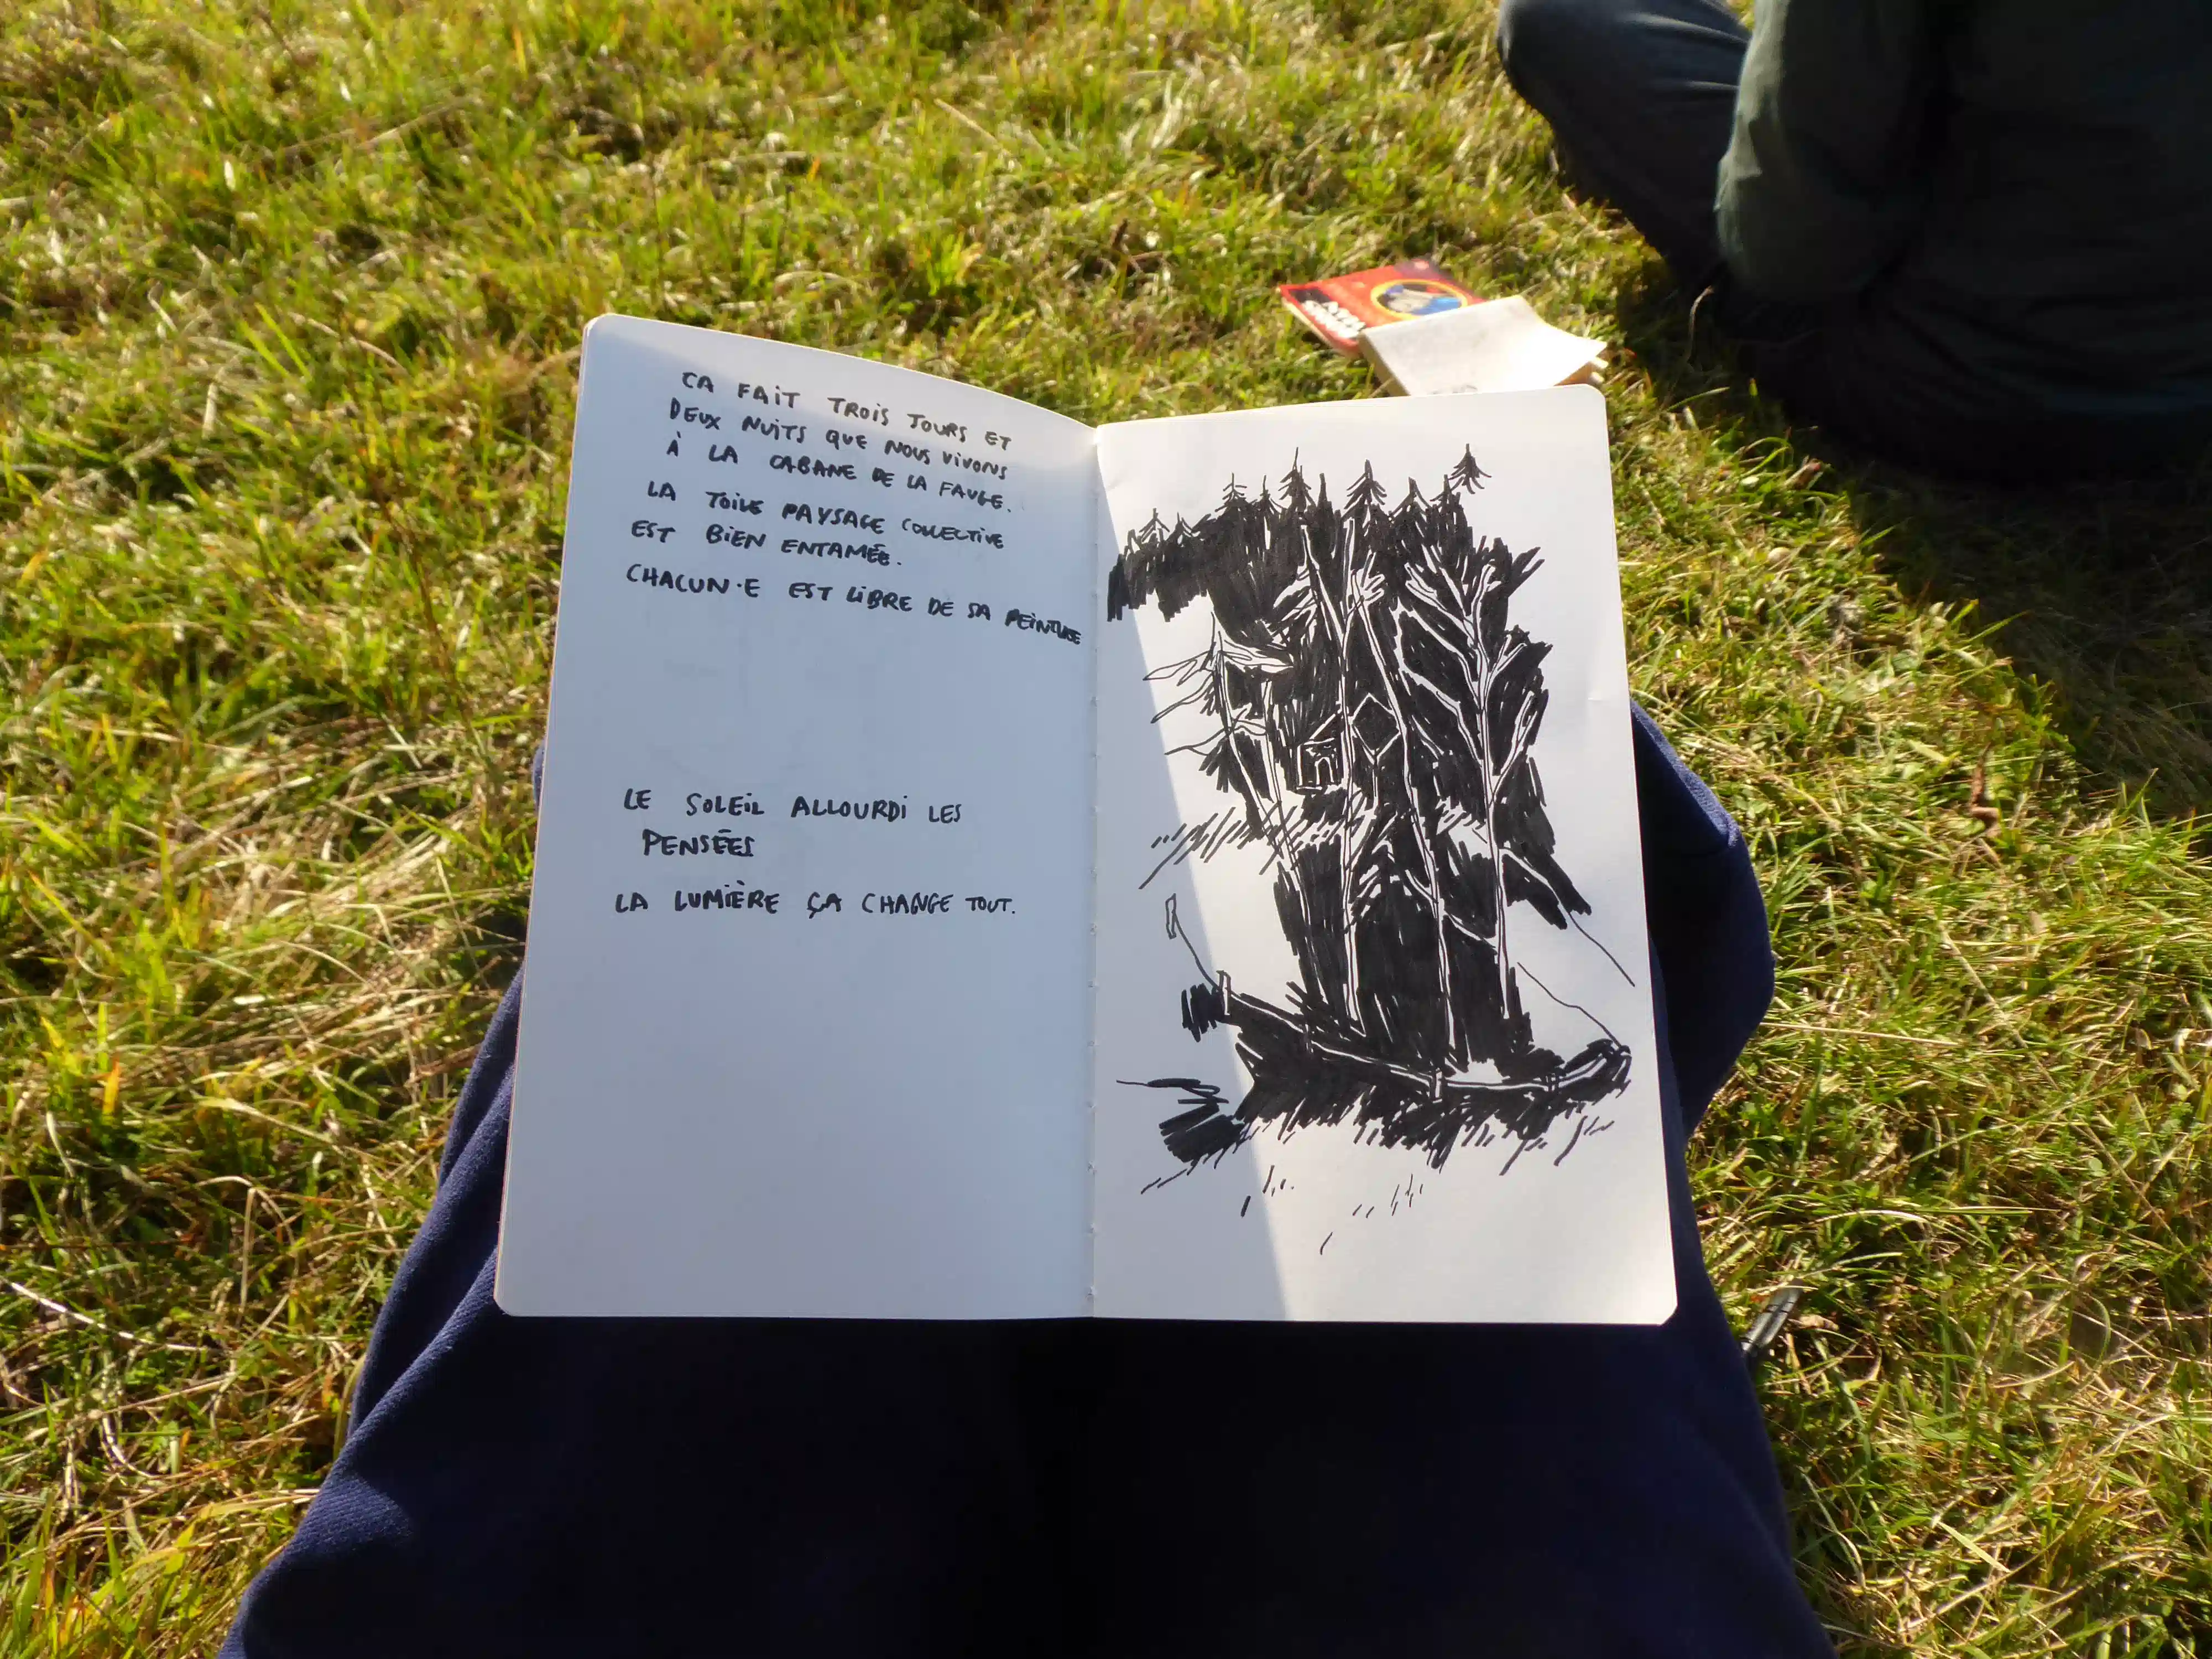 CA FAIT TROIS JOURS ET
DEUX NUITS QUE NOUS VIVONS
À LA CABANE DE LA FAUGE.
LA TOILE PAYSAGE COLLECTIVE
EST BIEN ENTAMÉE.
CHACUN·E EST LIBRE DE SA PEINTURE
LE SOLEIL ALLOURDI LES
PENSÉES
LA LUMIÈRE ÇA CHANGE TOUT.